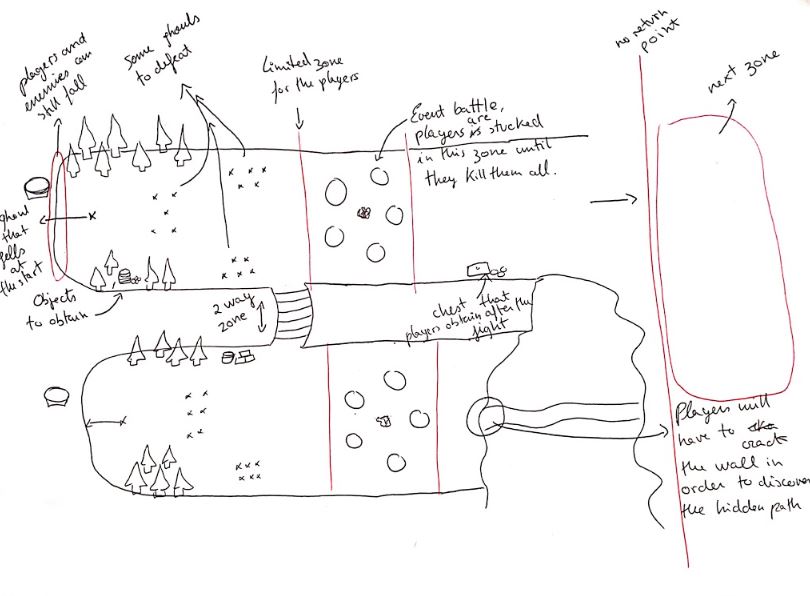 players and
enemies can
still fall
Some ghouls
to defeat
Limited zone
for the players
Event battle,
are
players is stucked
in this zone until
they kill them all.
no return
point
next zone
ghoul
that
fells
at
the start
Objects
to obtain
2 way
zone
chest that
players obtain after the
fight
Players will
have to
crack
the wall in
order to discover
the hidden path